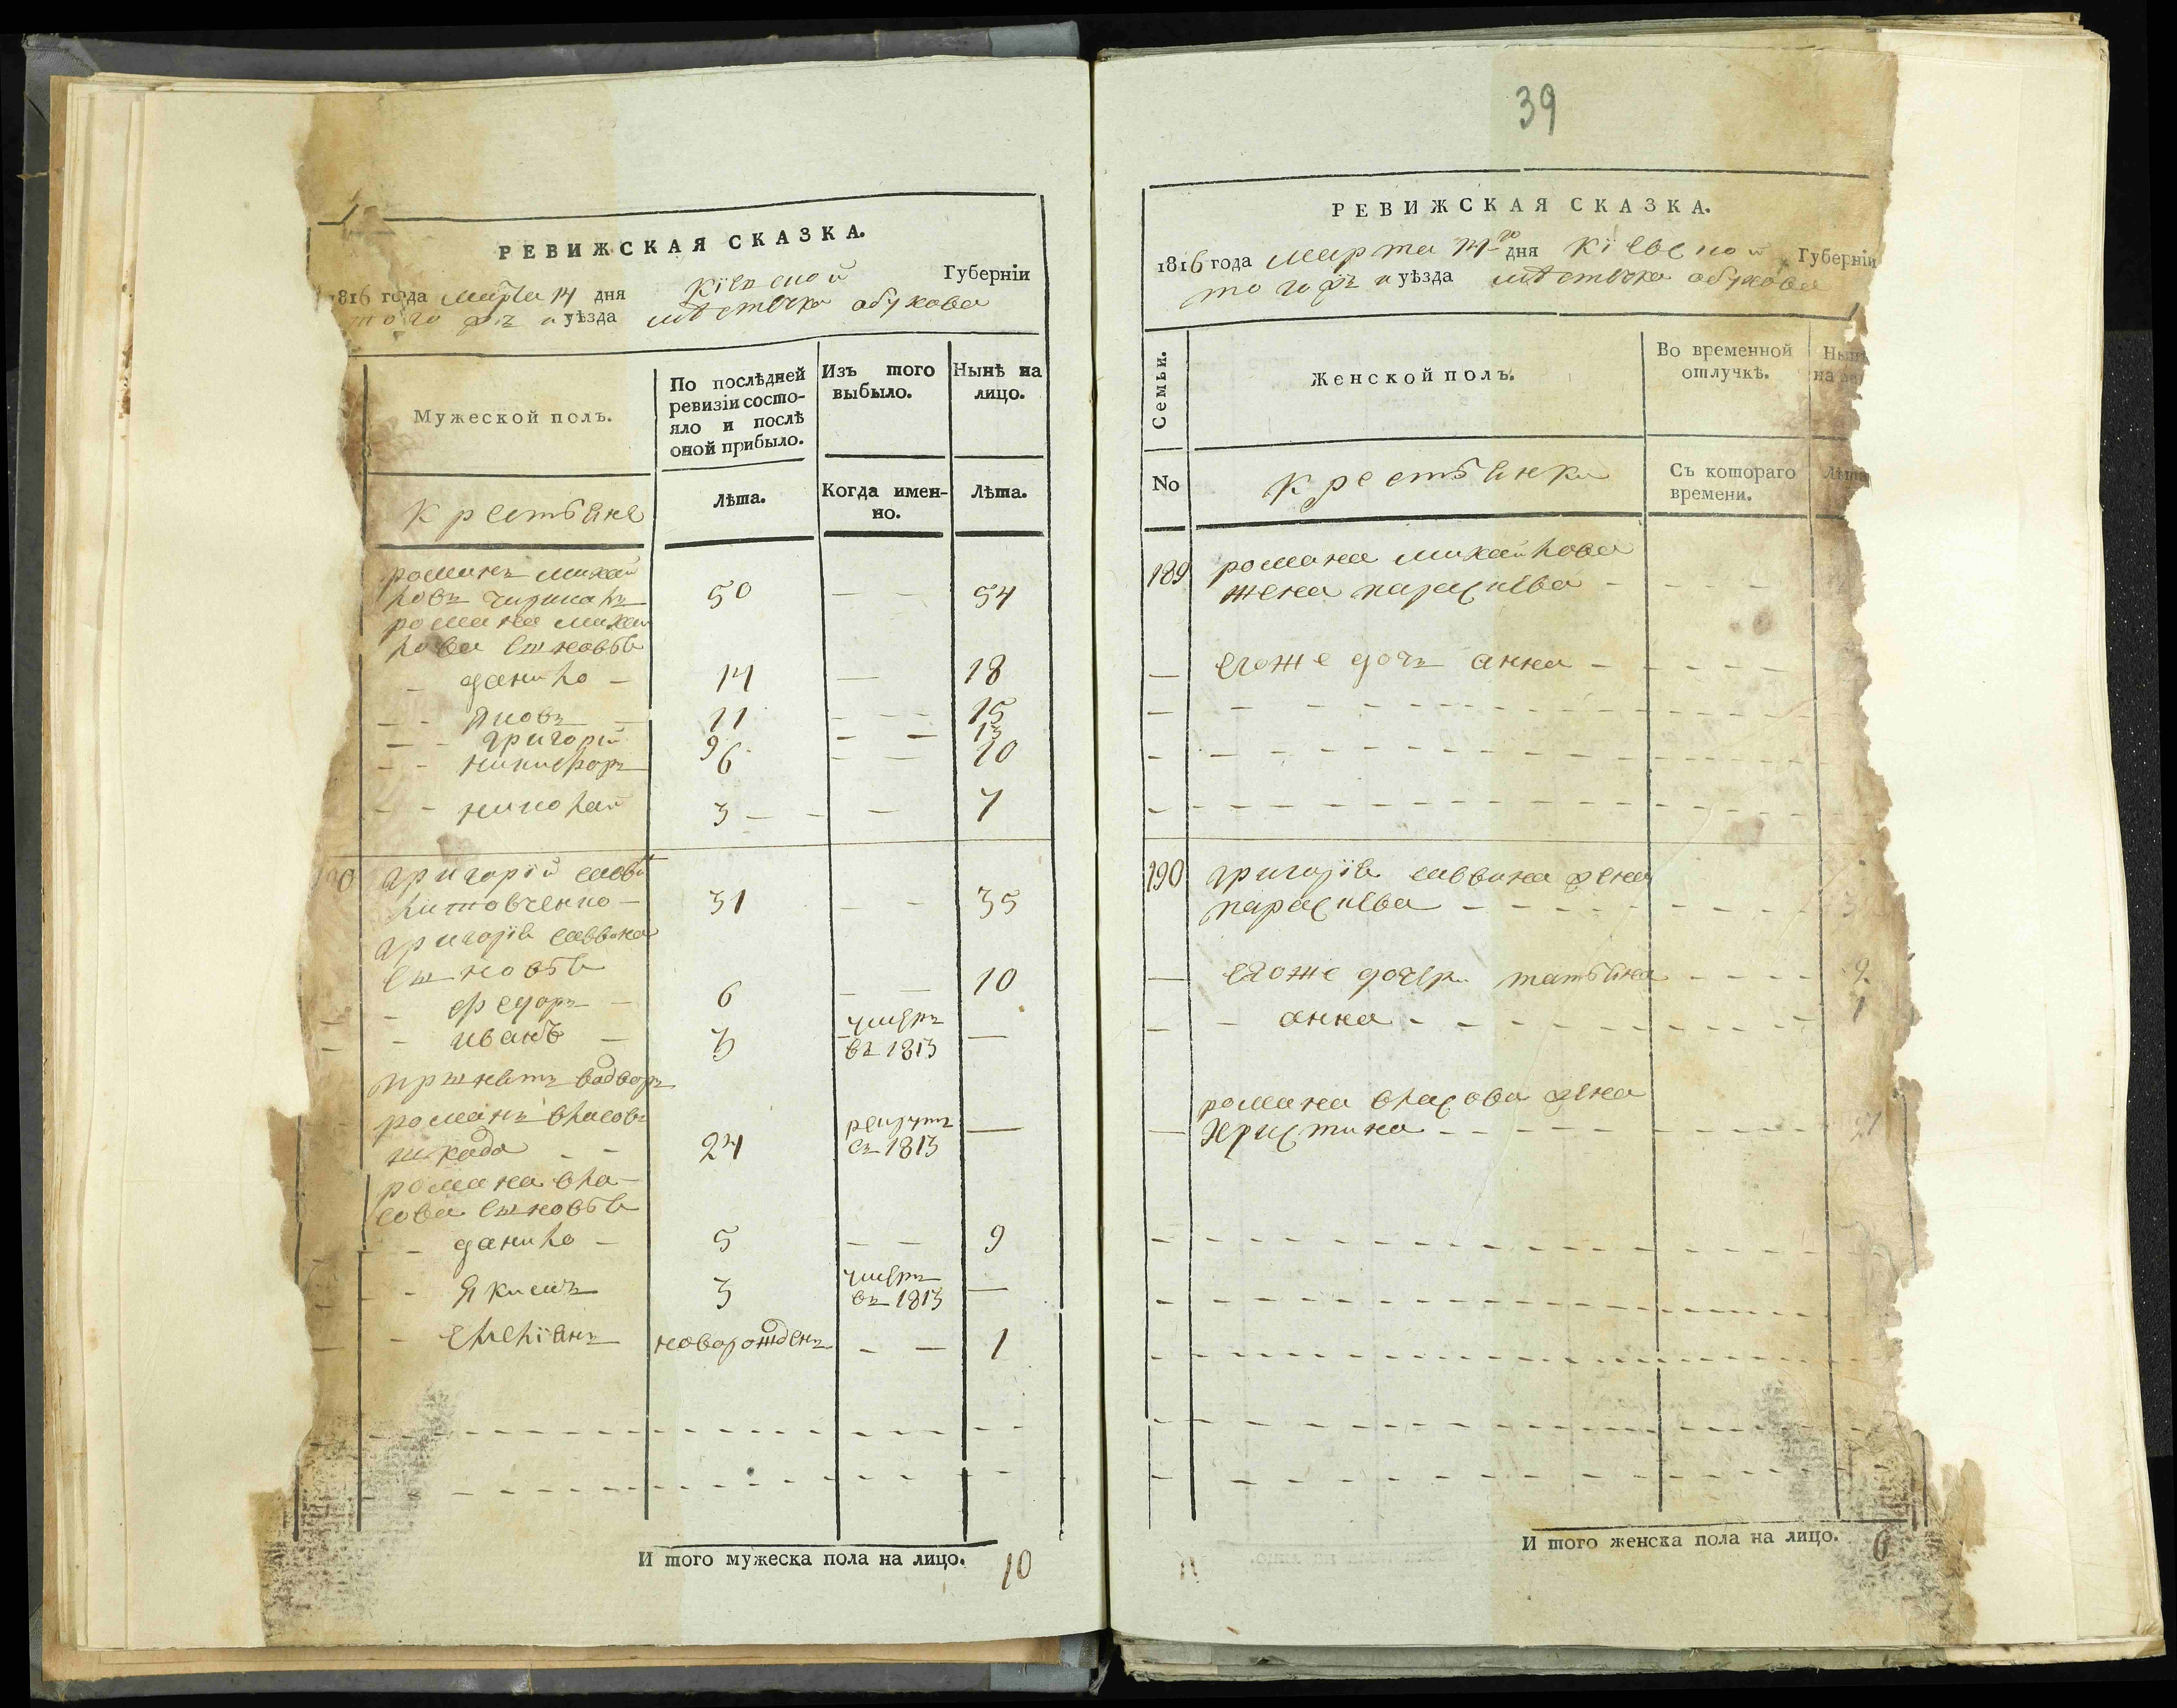 РЕВИЖСКАЯ СКАЗКА.
1816 года марта 14 дня Кіевской Губерніи
того жъ уѣзда мѣстечка обухова
Мужеской полъ.
По послѣдней ревизіи состояло и послѣ оной прибыло.
Изъ того выбыло.
Нынѣ на лицо.
Крестьяне
Лѣта.
Когда именно.
Лѣта.
романъ михай
ловъ 50 — — 54
романа михай
лова сыновья
— данило — 14 — 18
— - яковъ — 11 - — 15
— - григорій 9 - — 13
- - никифоръ 6 — — 10
- - николай 3 — - — 7
190 григорій саввинъ
литовченко — 31 — — 35
григорія саввина
сыновья
- федоръ — 6 — — 10
- иванъ — 3 умеръ въ 1813 —
романъ власовъ
шкода - - 24 рекрутъ съ 1813 —
романа вла-
сова сыновья
- данило — 5 — — 9
- якимъ 3 умеръ въ 1813 —
- новорожденъ - — 1
И того мужеска пола на лицо. 10
39
РЕВИЖСКАЯ СКАЗКА.
1816 года марта 14го дня Кіевской Губерніи
того жъ уѣзда мѣстечка обухова
Семьи.
Женской полъ.
Во временной отлучкѣ.
No
Крестьянки
Съ котораго времени.
189 романа михайлова
жена параскева -
— егоже дочь анна -
190 григорія саввина жена
параскева -
— егоже дочери татьяна - 9
— - анна - 1
романа власова жена
— христина -
И того женска пола на лицо. 6